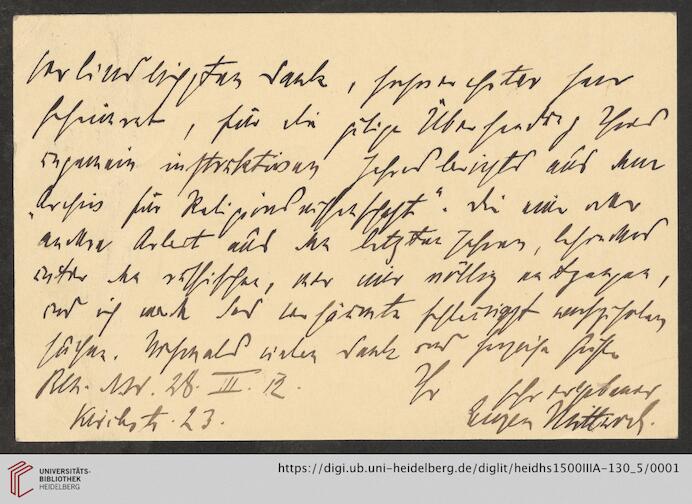 Verbindlichsten Dank, hochverehrter Herr
Geheimrat, für die gütige Übersendung Ihres
ungemein instruktiven Jahresberichts aus dem
„Archiv für Religionswissenschaft“. Die eine oder
andere Arbeit aus den letzten Jahren, besonders
unter den russischen, war mir völlig entgangen,
und ich werde das Versäumte schleunigst nachzuholen
suchen. Nochmals vielen Dank und herzliche Grüße
Bln. NW. 28. III. 12. Ihr sehr ergebener
Kirchstr. 23. Eugen Mittwoch.
UNIVERSITÄTS-
BIBLIOTHEK
HEIDELBERG
https://digi.ub.uni-heidelberg.de/diglit/heidhs1500IIIA-130_5/0001